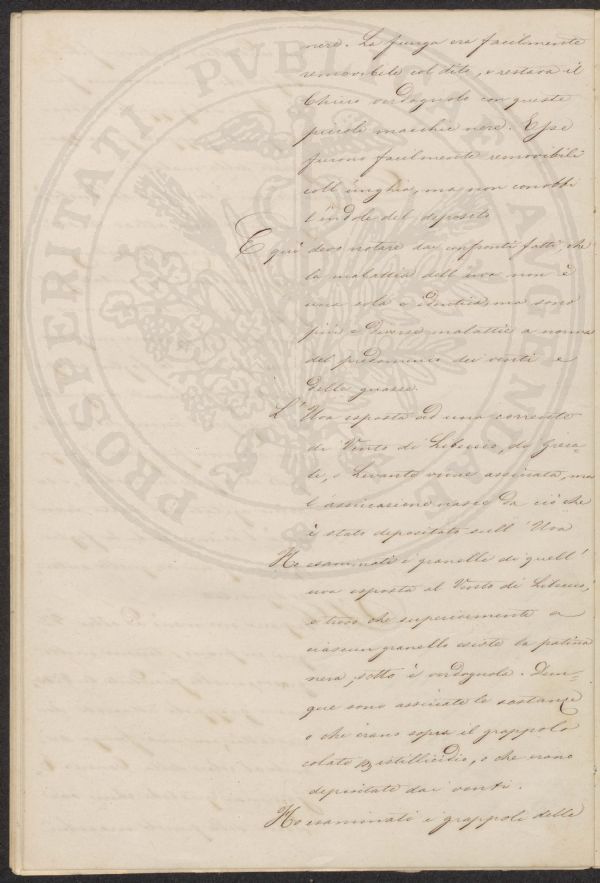 nere. La funga era facilmente
removibile col dito, e restava il
Chicco verdognolo con queste
piccole macchie nere. Esse
furono facilmente removibili
coll' unghia, ma non conobbi
l'indole del deposito
E qui devo notare dai confronti fatti, che
la malattia dell' uva non è
una sola o identica, ma sono
più e diverse malattie a norma
del predominio dei venti e
delle guazze.
L' Uva esposta ad una corrente
di Vento di Libeccio, di Greca=
le, o Levante viene assicata, ma
l' assicazione nasce da ciò che
è stato depositato sull' Uva
Ho esaminati i granelli di quell'
uva esposta al Vento di Libeccio,
e trovo che superiormente a
ciascun granello esiste la patina
nera, sotto è verdognola. Dun=
que sono assicate le sostanze
o che erano sopra il grappolo
colate per stillicidio, o che erano
depositate dai venti.
Ho esaminati i grappoli delle
PROSPERITATI PVBLICAE AVGENDAE